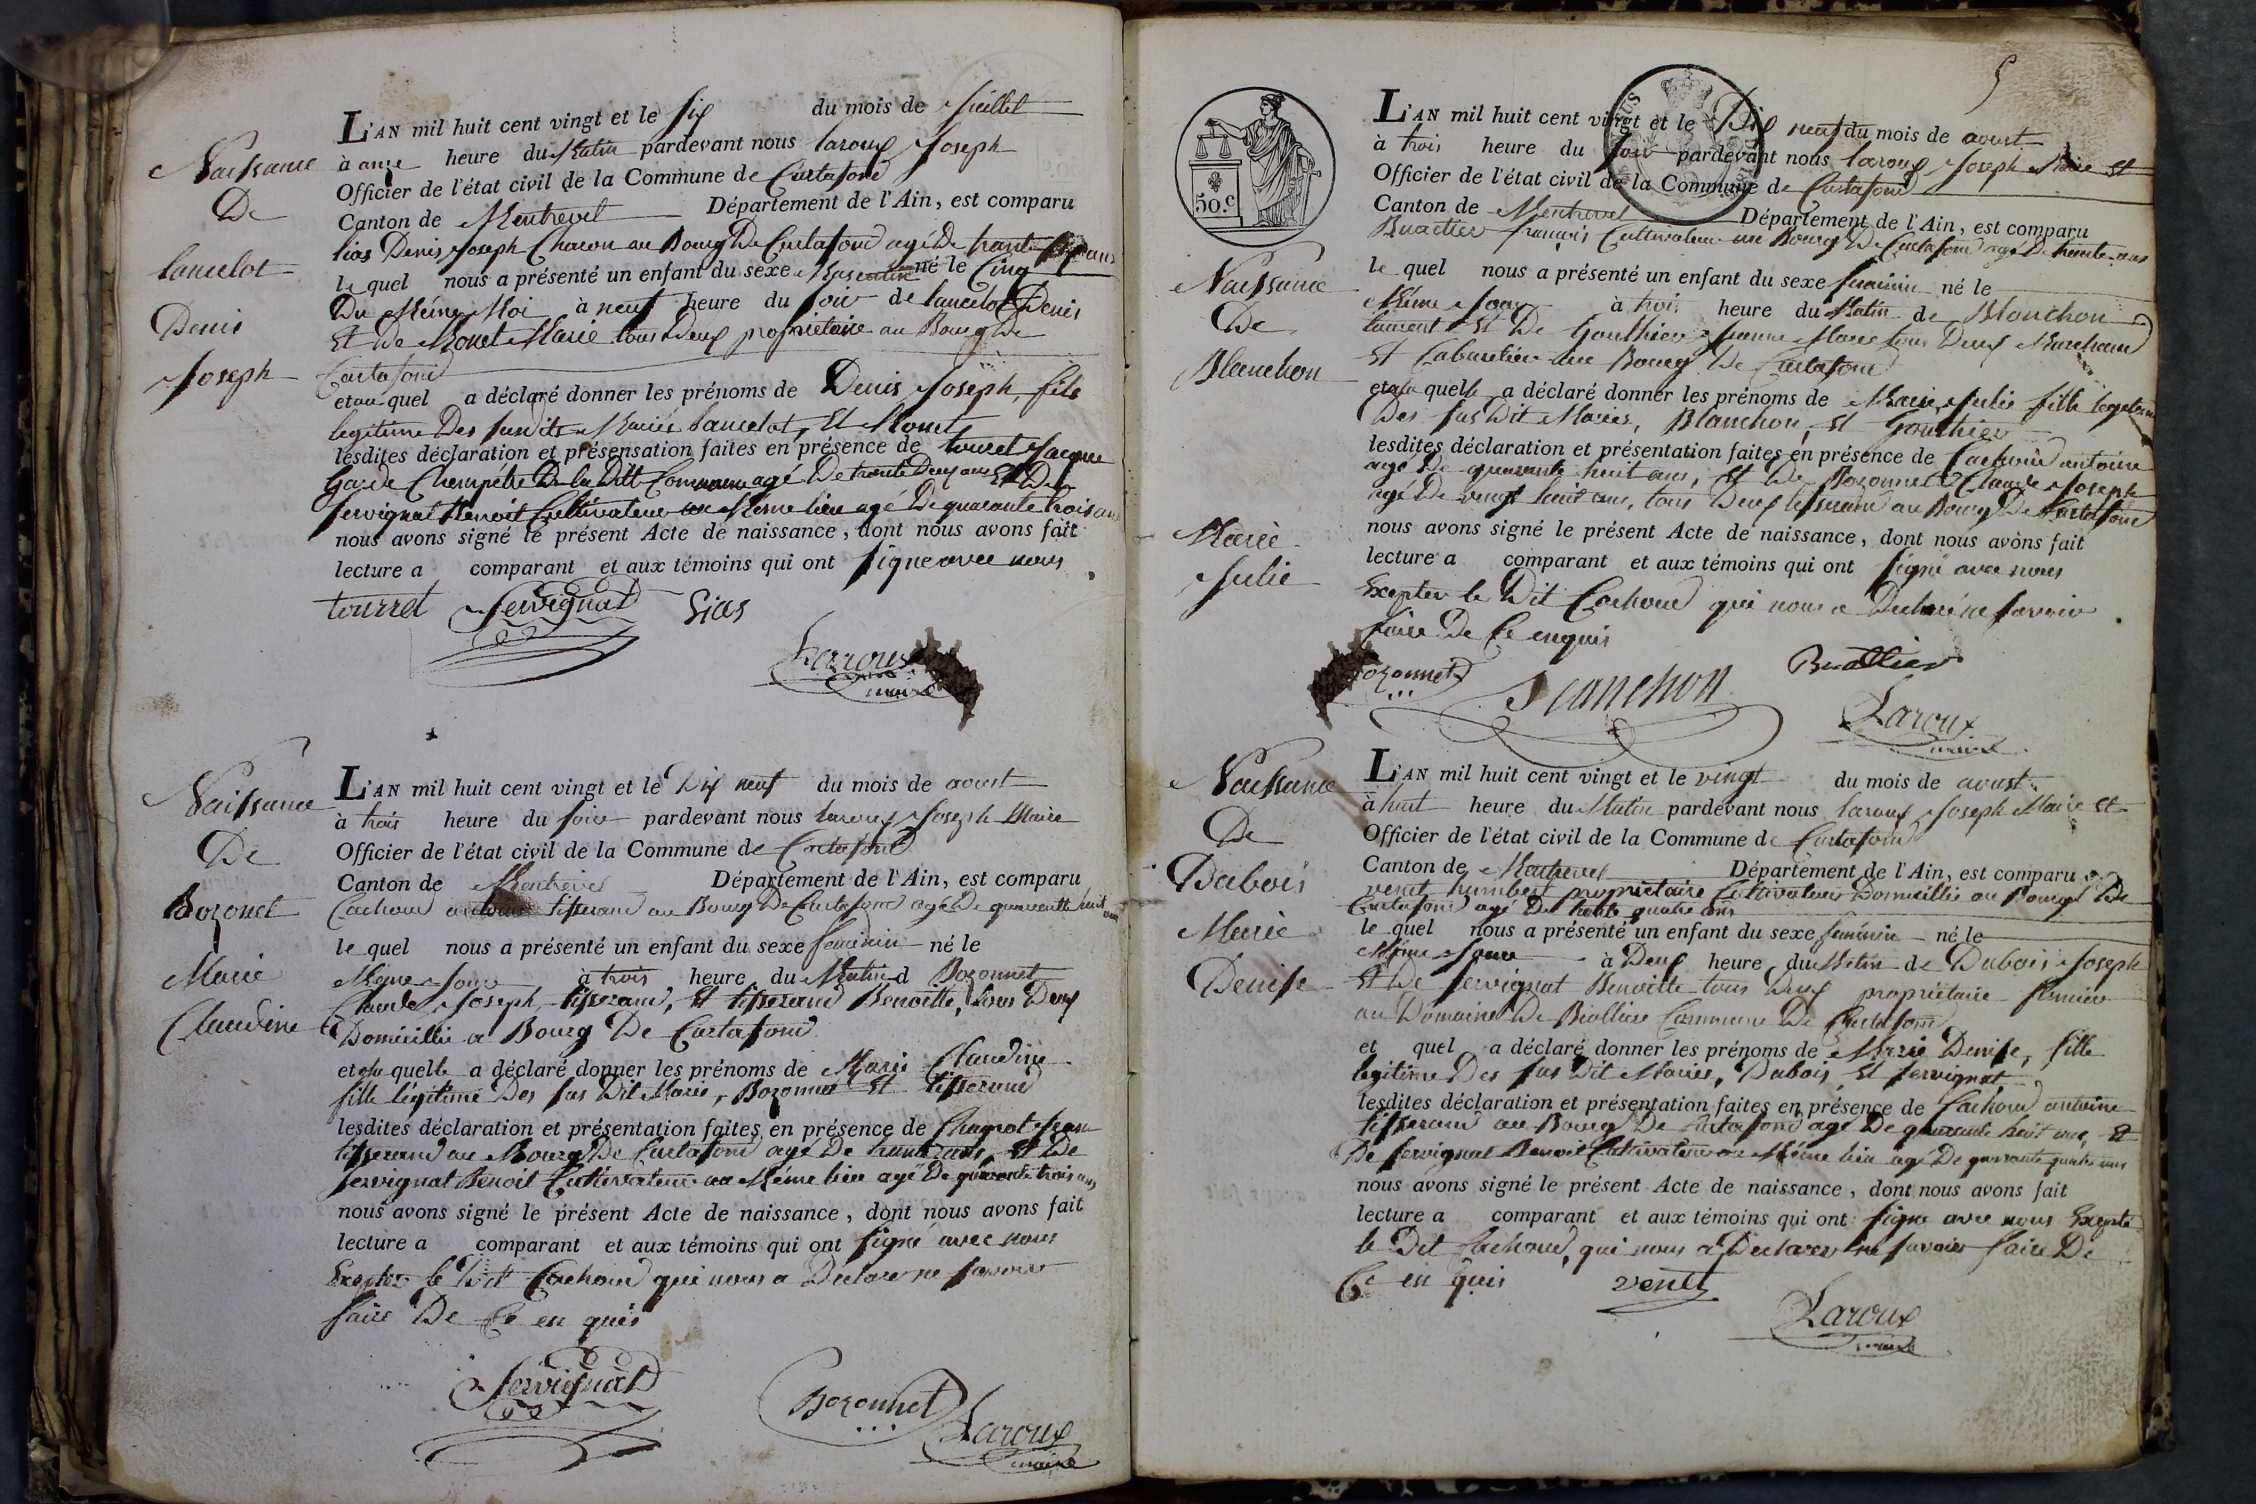 Naissance
De
Lancelot
Denis
Joseph
L'AN mil huit cent vingt et le six du mois de Juillet
à onze heure du Matin pardevant nous laroux Joseph
Officier de l'état civil de la Commune de Curtafond
Canton de Montrevel Département de l'Ain, est comparu
lias Denis Joseph Charon au Bourg De Curtafond agé De trante ans
le quel nous a présenté un enfant du sexe Masculin né le Cinq
Du Méme Moi à neuf heure du soir de lancelot Denis
Et De Monet Marie tous Deux proprietaire au Bourg De
Curtafond
et au quel a déclaré donner les prénoms de Denis Joseph, fils
legitime Des susdits Mariés lancelot, Et Monet
lesdites déclaration et présensation faites en présence de touret Jacque
Garde Champétre De la Ditte Commune agé De trante Deux ans Et De
servignat Benoit Cultivateur au Meme lieu agé De quarante trois ans
nous avons signé le présent Acte de naissance, dont nous avons fait
lecture a comparant et aux témoins qui ont signe avec nous
tourret Servignat Lias
Laroux
maire
Naissance
De
Bozonet
Marie
Claudine
L'AN mil huit cent vingt et le Dix neuf du mois de aoust
à trois heure du soir pardevant nous laroux Joseph Maire
Officier de l'état civil de la Commune de Curtafond
Canton de Montrevel Département de l'Ain, est comparu
Cachoud antoine tisserand au Bourg De Curtafond agé De quarantte huit ans
le quel nous a présenté un enfant du sexe feminin né le
Meme Jour à trois heure du Matin d Bozonnet
Claude Joseph tisserand, Et tisserand Benoitte, tous Deux
Domicillié a Bourg De Curtafond
et a la quelle a déclaré donner les prénoms de Marie Claudine
fille légitime Des sus Dit Marié, Bozonnet Et tisserand
lesdites déclaration et présentation faites en présence de Chagnot Jean
tisserand au Bourg De Curtafond agé De ans, Et De
servignat Benoit Cultivateur au Méme lieu agé De quarante trois ans
nous avons signé le présent Acte de naissance, dont nous avons fait
lecture a comparant et aux témoins qui ont signé avec nous
Excepter le Dit Cachoud qui nous a Declare ne savoir
faire De Ce en quis
Servignat
Bozonnet
Laroux
maire
5
50.c
Naissance
De
Blanchon
Marie
Julie
L'AN mil huit cent vingt et le Dix neuf du mois de aoust
à trois heure du soir pardevant nous laroux Joseph Maire Et
Officier de l'état civil de la Commune de Curtafond
Canton de Montrevel Département de l'Ain, est comparu
Buattier françois Cultivateur au Bourg De Curtafond agé De trante ans
le quel nous a présenté un enfant du sexe feminin né le
Méme Jour à trois heure du Matin de Blanchon
laurent Et De Gonthier Jeanne Marie tous Deux Marchand
Et Cabaretier au Bourg De Curtafond
et a la quelle a déclaré donner les prénoms de Marie Julie fille legitime
Des sus Dit Mariés, Blanchon, Et Gonthier
lesdites déclaration et présentation faites en présence de Cachoud antoine
agé De quarante huit ans, Et De Bozonnet Claude Joseph
agé De vingt huit ans, tous Deux tisserand au Bourg De Curtafond
nous avons signé le présent Acte de naissance, dont nous avons fait
lecture a comparant et aux témoins qui ont signé avec nous
Excepter le Dit Cachoud qui nous a Declaré ne savoir
faire De Ce enquis
Bozonnet Blanchon Buattier
Laroux
maire
Naissance
De
Dubois
Marie
Denise
L'AN mil huit cent vingt et le vingt du mois de aoust
à huit heure du Matin pardevant nous laroux Joseph Maire Et
Officier de l'état civil de la Commune de Curtafond
Canton de Montrevel Département de l'Ain, est comparu
venet humbert propriétaire Cultivateur Domicillié au Bourg De
Curtafond agé De trante quatre ans
le quel nous a présenté un enfant du sexe feminin né le
Méme Jour à Deux heure du Matin de Dubois Joseph
Et De servignat Benoitte tous Deux propriétaire fermier
au Domaine De Biollière Commune De Curtafond
et quel a déclaré donner les prénoms de Marie Denise, fille
legitime Des sus Dit Mariés, Dubois Et servignat
lesdites déclaration et présentation faites en présence de Cachoud antoine
tisserand au Bourg De Curtafond agé De quarante huit ans Et
De servignat Benoit Cultivateur au Méme lieu agé De quarante quatre ans
nous avons signé le présent Acte de naissance, dont nous avons fait
lecture a comparant et aux témoins qui ont signe avec nous Excepté
le Dit Cachoud, qui nous a Declarer ne savoir faire De
Ce en quis venet
Laroux
maire